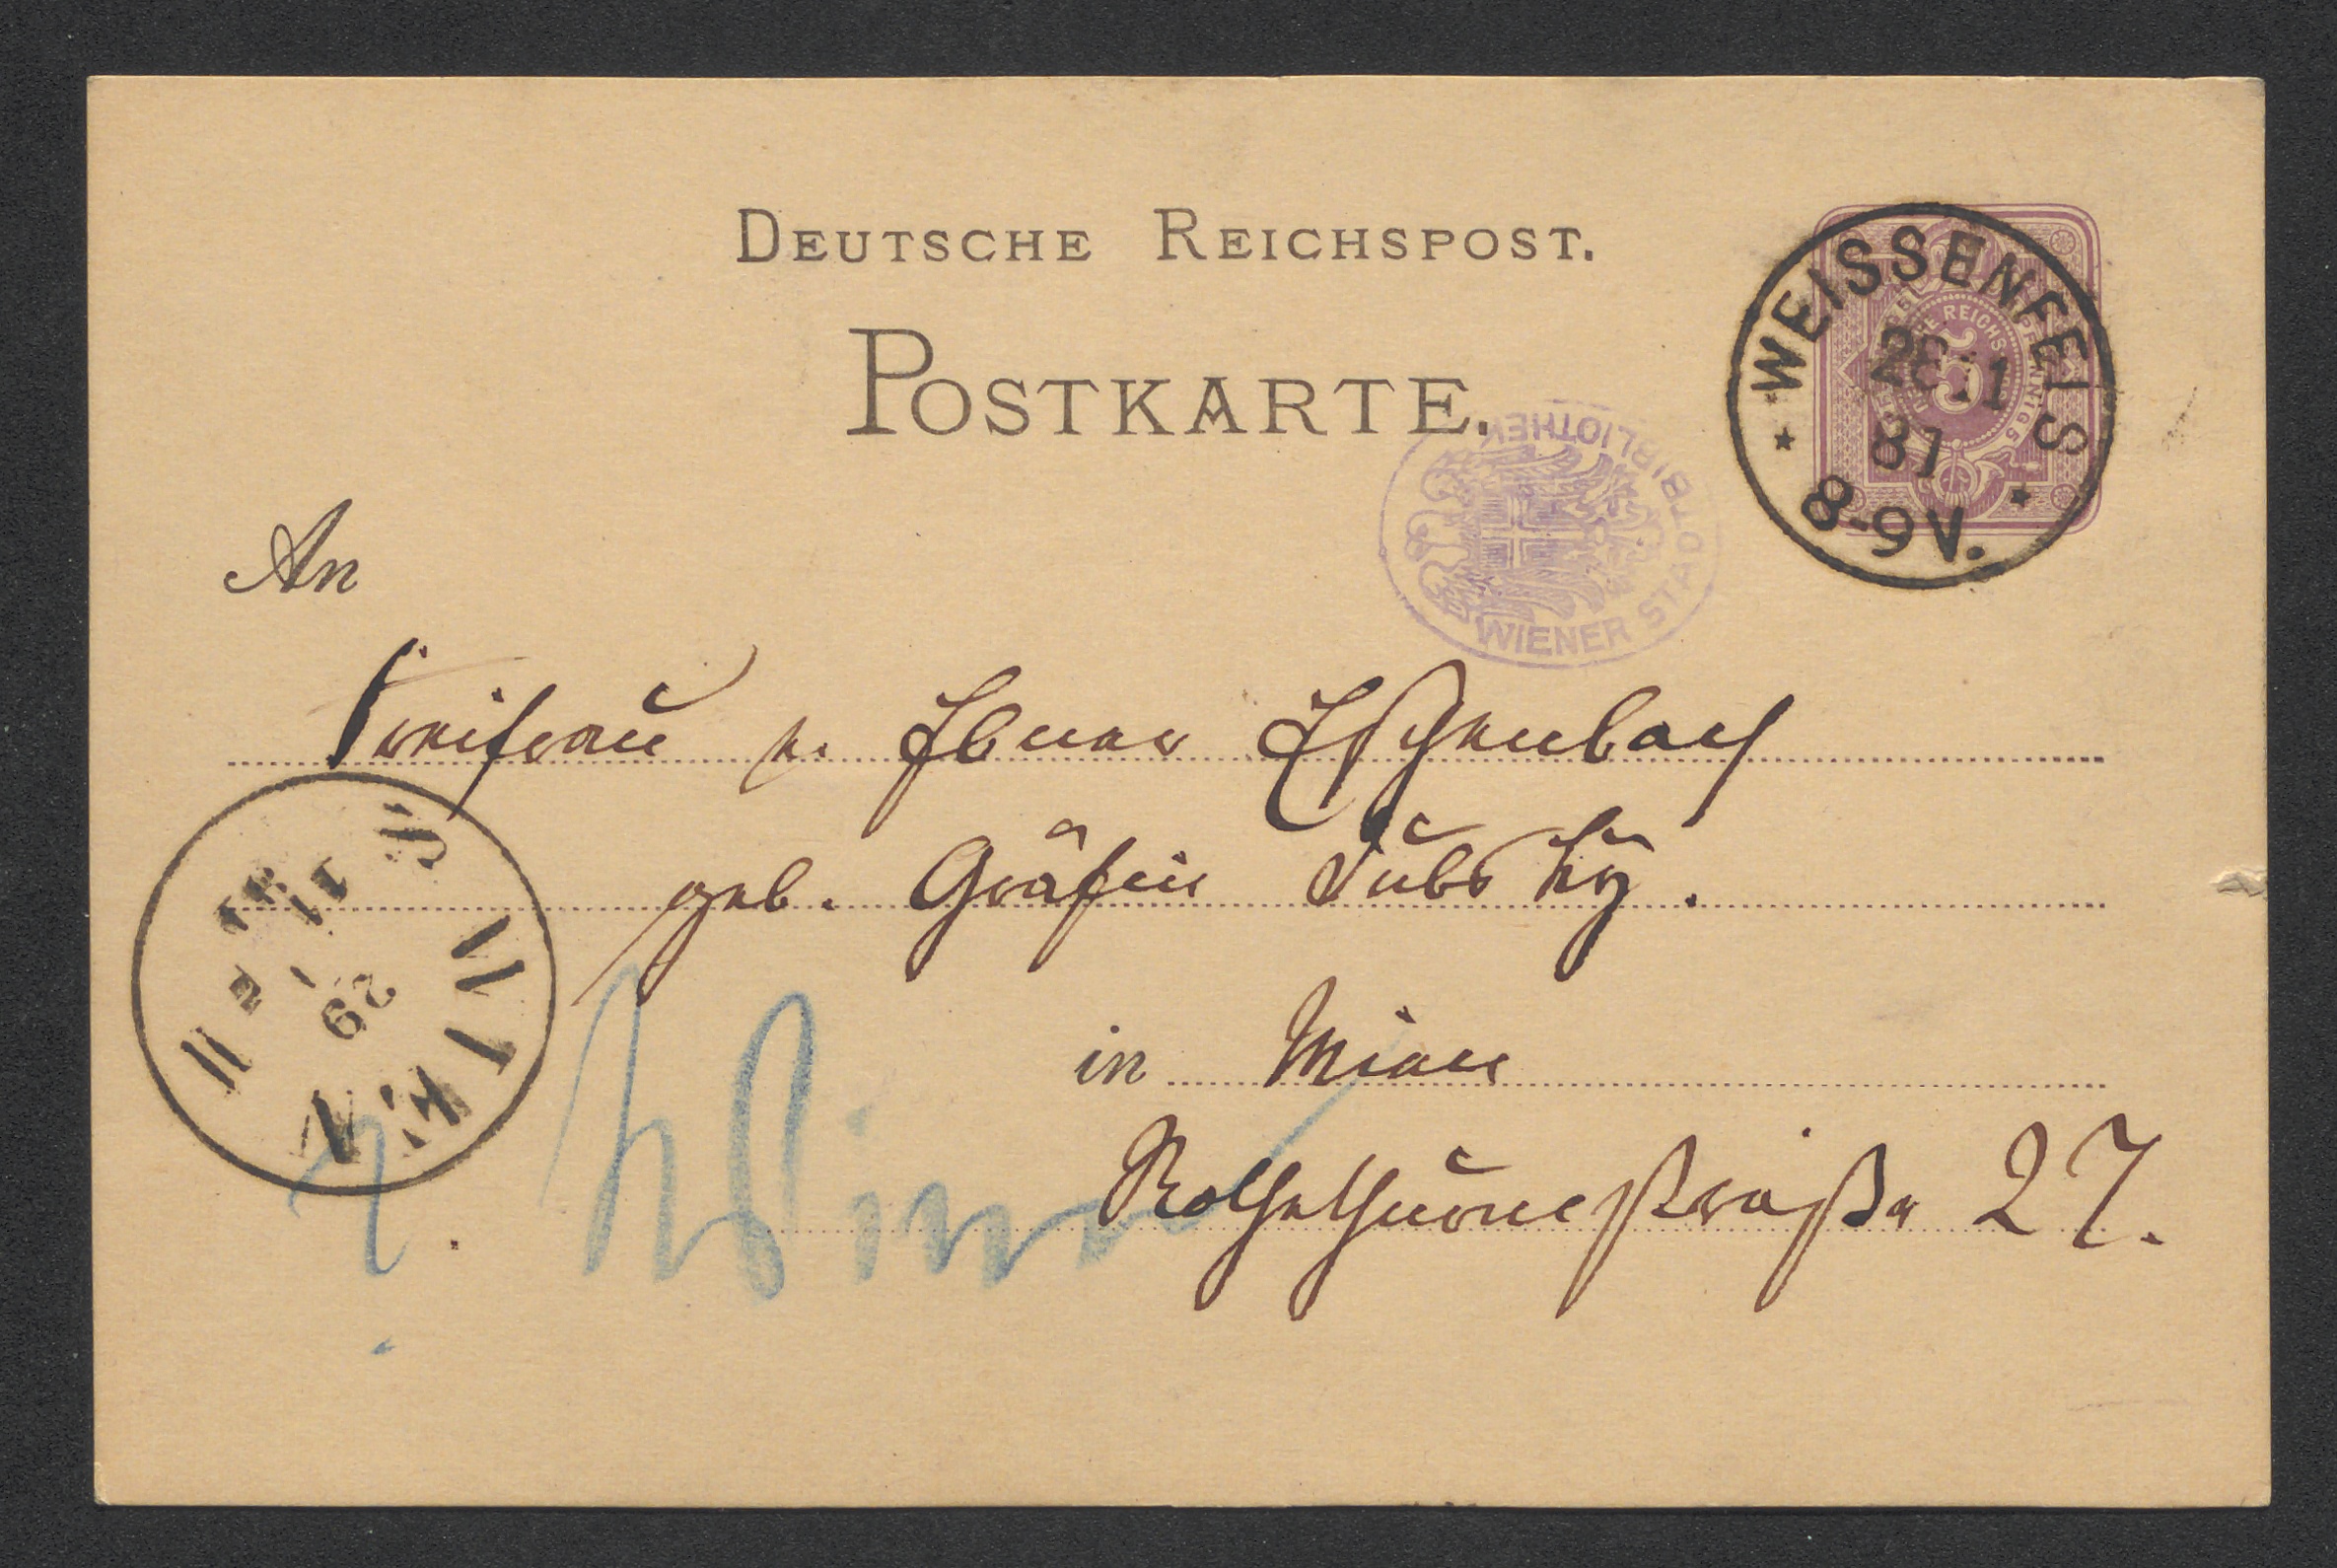 DEUTSCHE REICHSPOST.
POSTKARTE.
WEISSENFELS
11
81
8-9 V.
WIENER STADTBIBLIOTHEK
An
Freifrau v. Ebner Eschenbach
geb. Gräfin Dubsky.
in Wien
Rothethurmstraße 27.
WIEN
29
11
81
Wien